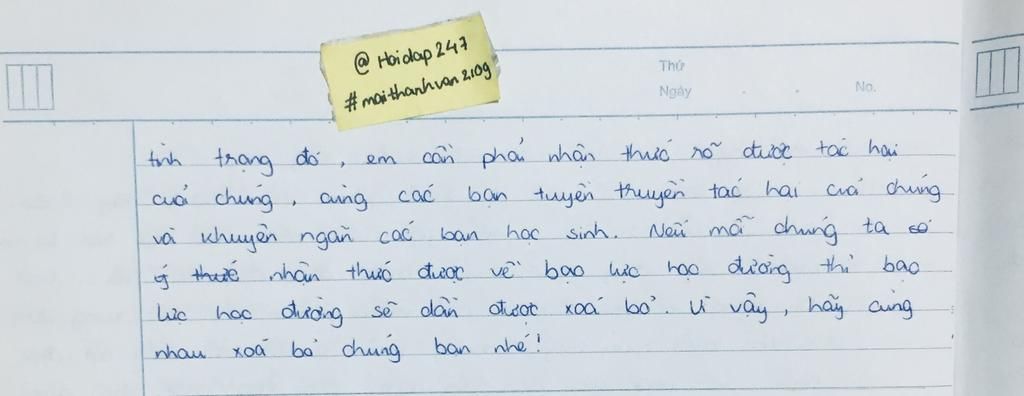 @ Hoidap247
# maithanhvan2109
Thứ
Ngày
No.
tình trạng đó, em cần phải nhận thức rõ được tác hại
của chúng, cùng các bạn tuyên truyền tác hại của chúng
và khuyên ngăn các bạn học sinh. Nếu mỗi chúng ta có
ý thức nhận thức được về bạo lực học đường thì bạo
lực học đường sẽ dần được xoá bỏ. Vì vậy, hãy cùng
nhau xoá bỏ chúng bạn nhé!